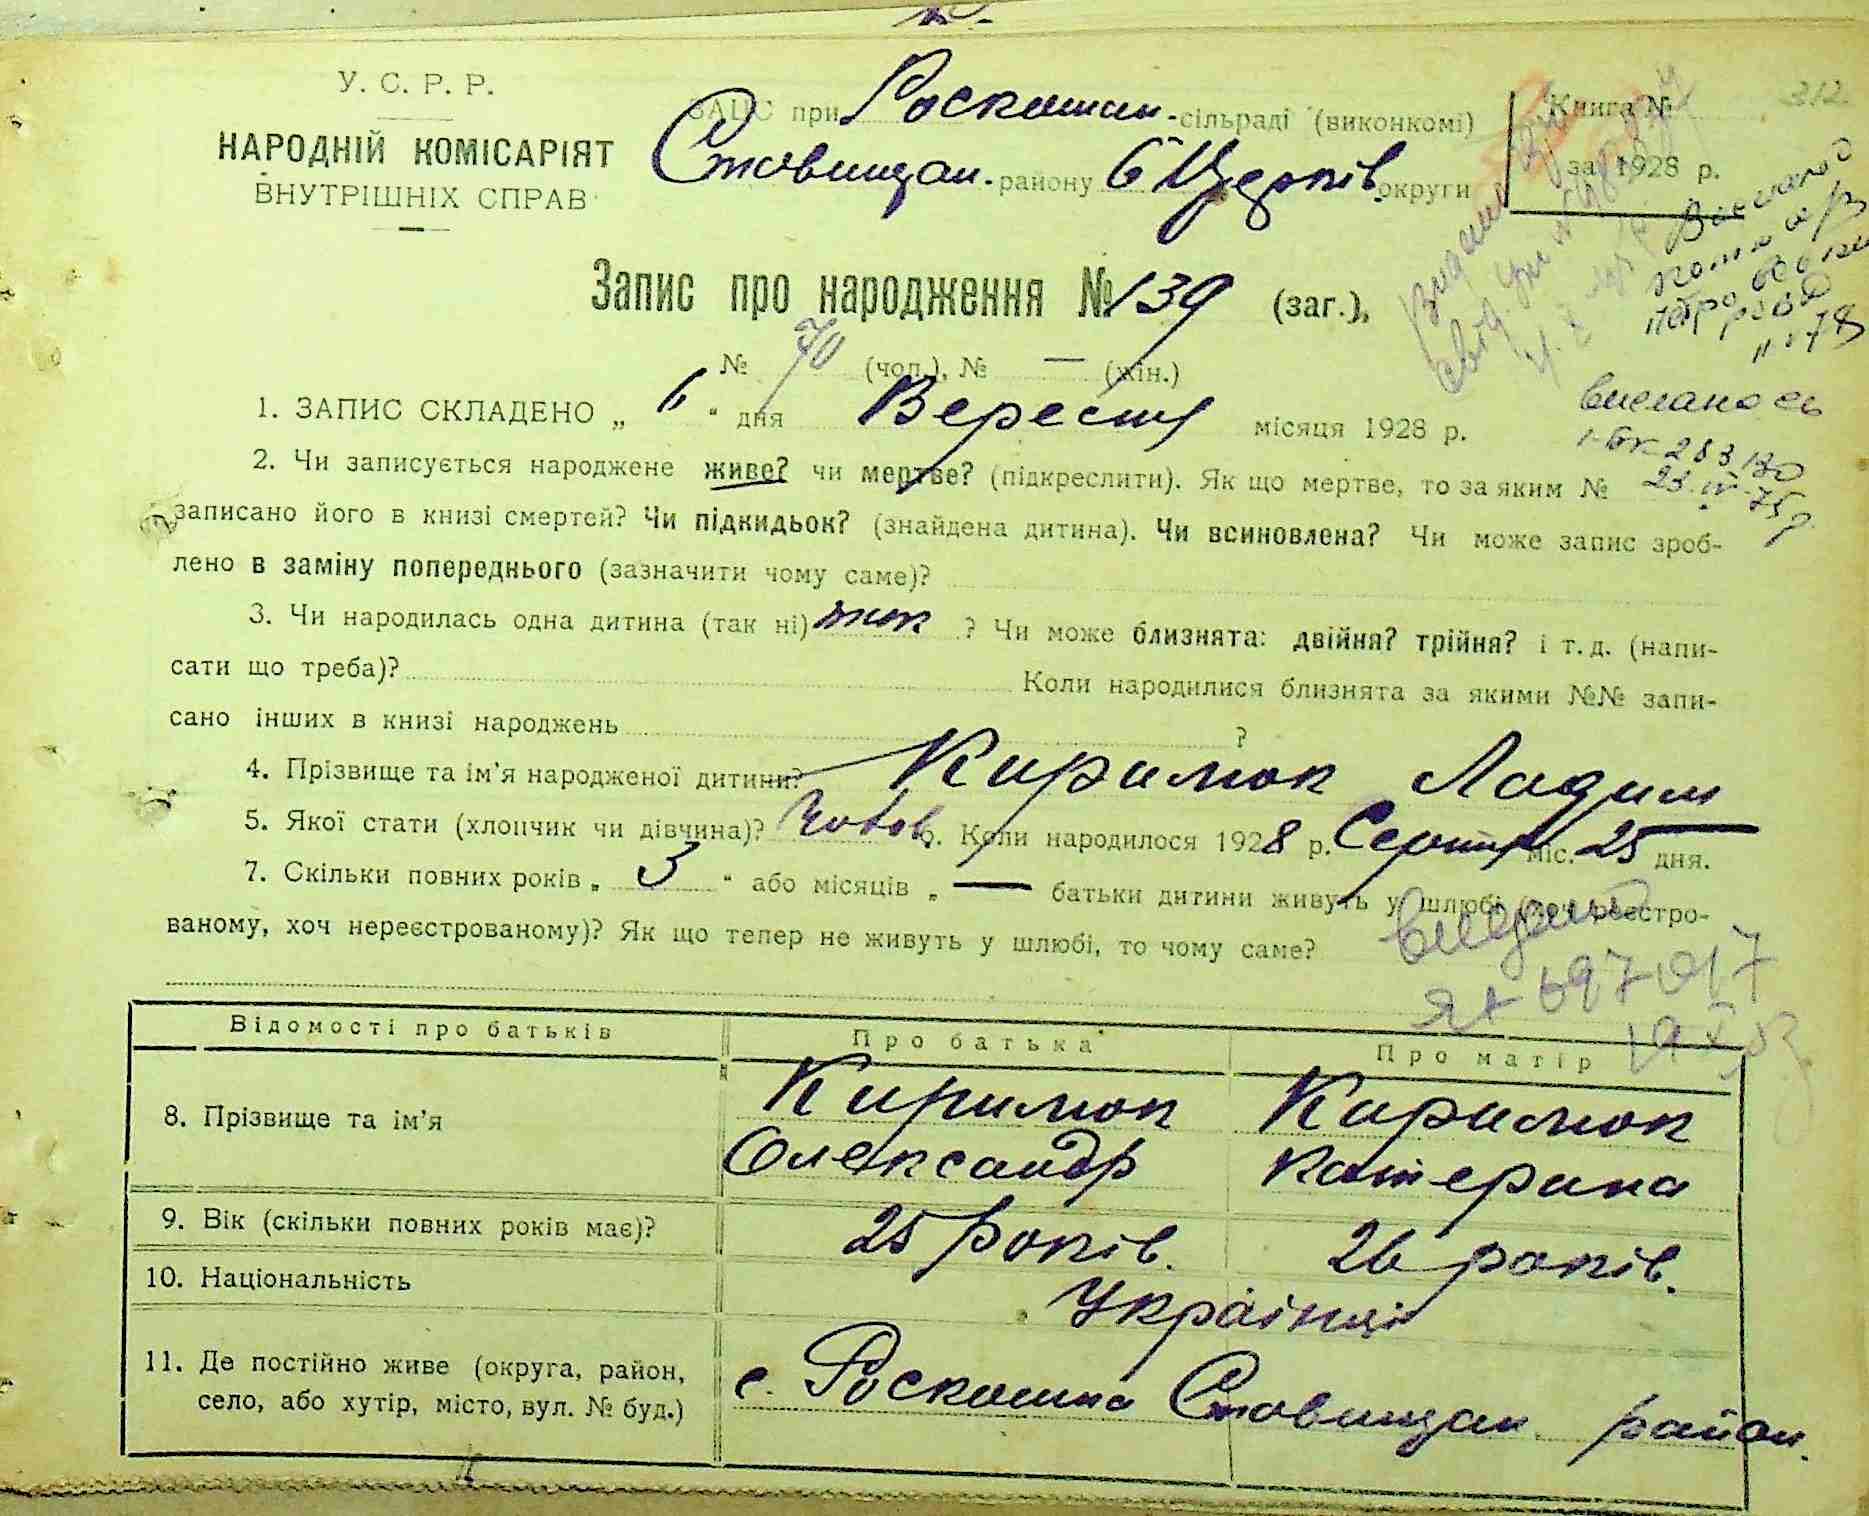 312.
У. С. Р. Р.
НАРОДНІЙ КОМІСАРІЯТ
ВНУТРІШНІХ СПРАВ
ЗАЦС при Роскошан. сільраді (виконкомі)
Ставищан. району Б Церків. округи
Книга №
за 1928 р.
Запис про народження № 139 (заг.),
№ 70 (чол.), № — (жін.)
1. ЗАПИС СКЛАДЕНО „ 6 “ дня Вересня місяця 1928 р.
2. Чи записується народжене живе? чи мертве? (підкреслити). Як що мертве, то за яким №
записано його в книзі смертей? Чи підкидьок? (знайдена дитина). Чи всиновлена? Чи може запис зроб-
лено в заміну попереднього (зазначити чому саме)?
3. Чи народилась одна дитина (так ні) так ? Чи може близнята: двійня? трійня? і т. д. (напи-
сати що треба)? Коли народилися близнята за якими №№ запи-
сано інших в книзі народжень ?
4. Прізвище та ім'я народженої дитини? Кирилюк Ладим
5. Якої стати (хлопчик чи дівчина)? Чолов. 6. Коли народилося 1928 р. Серпня міс. 25 дня.
7. Скільки повних років „ 3 “ або місяців „ — батьки дитини живуть у шлюбі (хоч реєстро-
ваному, хоч нереєстрованому)? Як що тепер не живуть у шлюбі, то чому саме?
Відомості про батьків Про батька Про матір
8. Прізвище та ім'я Кирилюк Олександр Кирилюк Катерина
9. Вік (скільки повних років має)? 25 років. 26 років.
10. Національність Українці
11. Де постійно живе (округа, район,
село, або хутір, місто, вул. № буд.) с. Роскошна Ставищан. район.